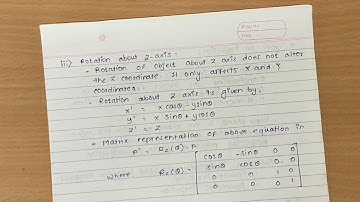 iii) Rotation about z-axis:
- Rotation of object about z axis does not alter
the z coordinate. It only affects x and y
coordinates.
- Rotation about z axis is given by.
x' = x cosθ - y sinθ
y' = x sinθ + y cosθ
z' = z
- Matrix representation of above equation in
P' = Rz(θ).P.
where Rz(θ) = cosθ -sinθ 0 0
sinθ cosθ 0 0
0 0 1 0
0 0 0 1